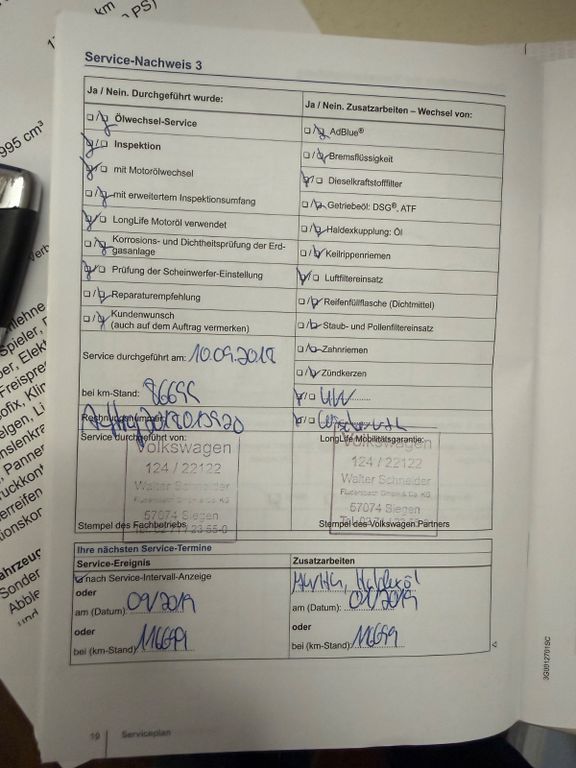 km
PS)
995 cm³
Service-Nachweis 3
Ja / Nein. Durchgeführt wurde:
Ölwechsel-Service
Inspektion
mit Motorölwechsel
mit erweitertem Inspektionsumfang
LongLife Motoröl verwendet
Korrosions- und Dichtheitsprüfung der Erd-
gasanlage
Prüfung der Scheinwerfer-Einstellung
Reparaturempfehlung
Kundenwunsch
(auch auf dem Auftrag vermerken)
Service durchgeführt am: 10.09.2018
bei km-Stand: 86699
Rechnungsnummer
Service durchgeführt von:
Volkswagen
124 / 22122
Walter Schneider
57074 Siegen
Stempel des Fachbetriebs
Ja / Nein. Zusatzarbeiten – Wechsel von:
AdBlue®
Bremsflüssigkeit
Dieselkraftstofffilter
Getriebeöl: DSG®, ATF
Haldexkupplung: Öl
Keilrippenriemen
Luftfiltereinsatz
Reifenfüllflasche (Dichtmittel)
Staub- und Pollenfiltereinsatz
Zahnriemen
Zündkerzen
LongLife Mobilitätsgarantie:
Volkswagen
124 / 22122
Walter Schneider
57074 Siegen
Stempel des Volkswagen Partners
Ihre nächsten Service-Termine
Service-Ereignis
nach Service-Intervall-Anzeige
oder
am (Datum): 09/2019
oder
bei (km-Stand): 116699
Zusatzarbeiten
am (Datum):
oder
bei (km-Stand):
19 Serviceplan
3G0012701SC